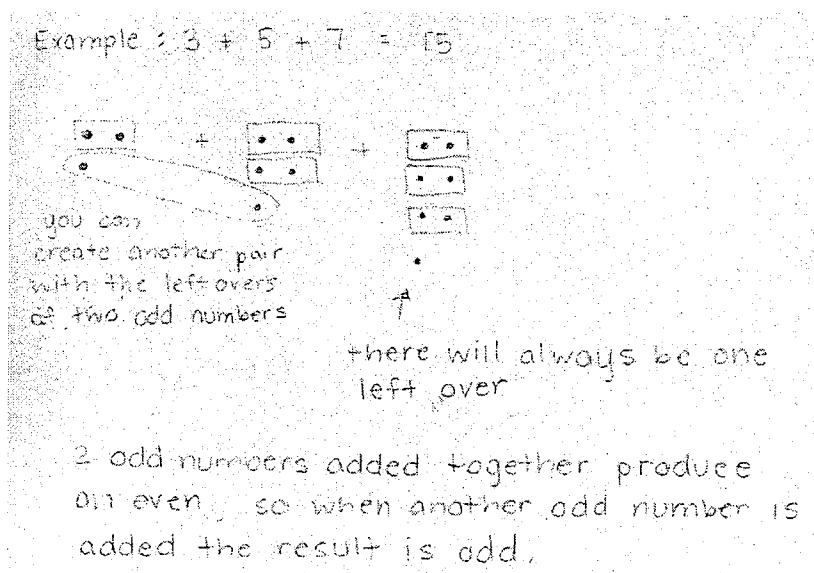 Example : 3 + 5 + 7 = 15
+ +
you can
create another pair
with the left overs
of two odd numbers
there will always be one
left over
2 odd numbers added together produce
an even, so when another odd number is
added the result is odd.